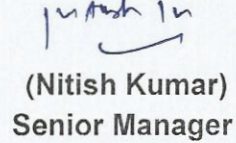 (Nitish Kumar)
Senior Manager